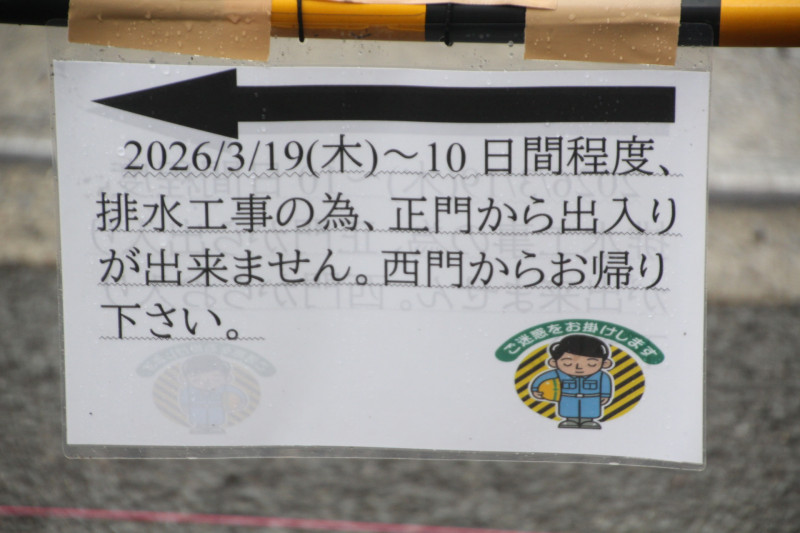 2026/3/19(木)～10 日間程度、
排水工事の為、正門から出入り
が出来ません。西門からお帰り
下さい。
ご迷惑をお掛けします